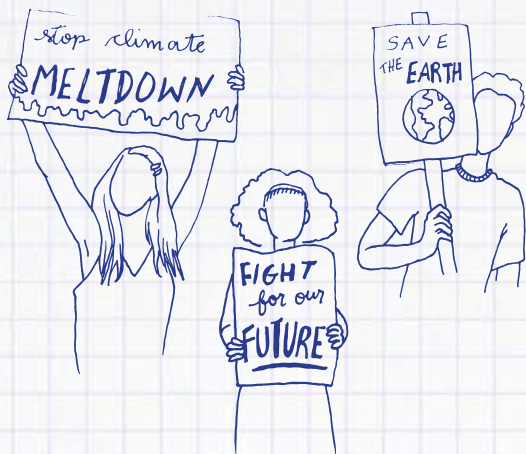 stop climate
MELTDOWN
SAVE
THE EARTH
FIGHT
for our
FUTURE